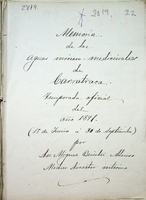 Memoria
de las
aguas minero medicinales
de
Carratraca
Temporada oficial
del
año 1881.
(15 de Junio á 30 de Septiembre)
por
Don Miguel
Médico Director interino